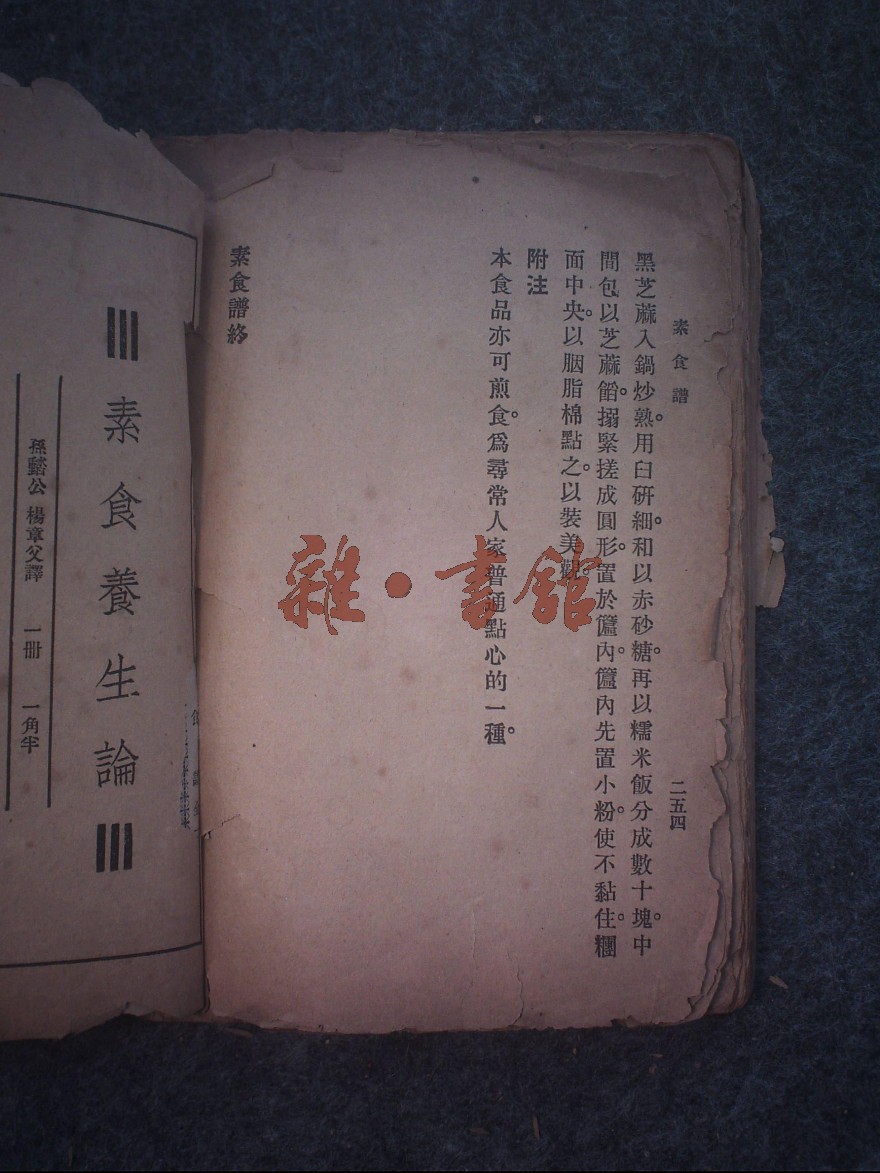 素食譜
二五四
黑芝蔴入鍋炒熟。用臼研細。和以赤砂糖。再以糯米飯分成數十塊。中
間包以芝蔴餡。搦緊搓成圓形。置於籚內。籚內先置小粉。使不黏住。糰
面中央。以胭脂棉點之。以裝美觀。
附注
本食品亦可煎食。爲尋常人家普通點心的一種。
素食譜終
素食養生論
孫谿公 楊章父譯 一冊 一角半
雜·書館